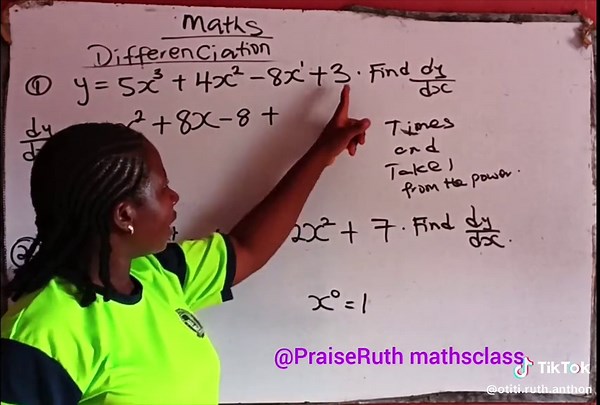 Maths
Differenciation
① y = 5x³ + 4x² - 8x¹ + 3. Find dy/dx
dy/dx x² + 8x - 8 +
Times
and
Take 1
from the power.
② 2x² + 7. Find dy/dx.
x⁰ = 1
@PraiseRuth mathsclass
TikTok
@otiti.ruth.anthon